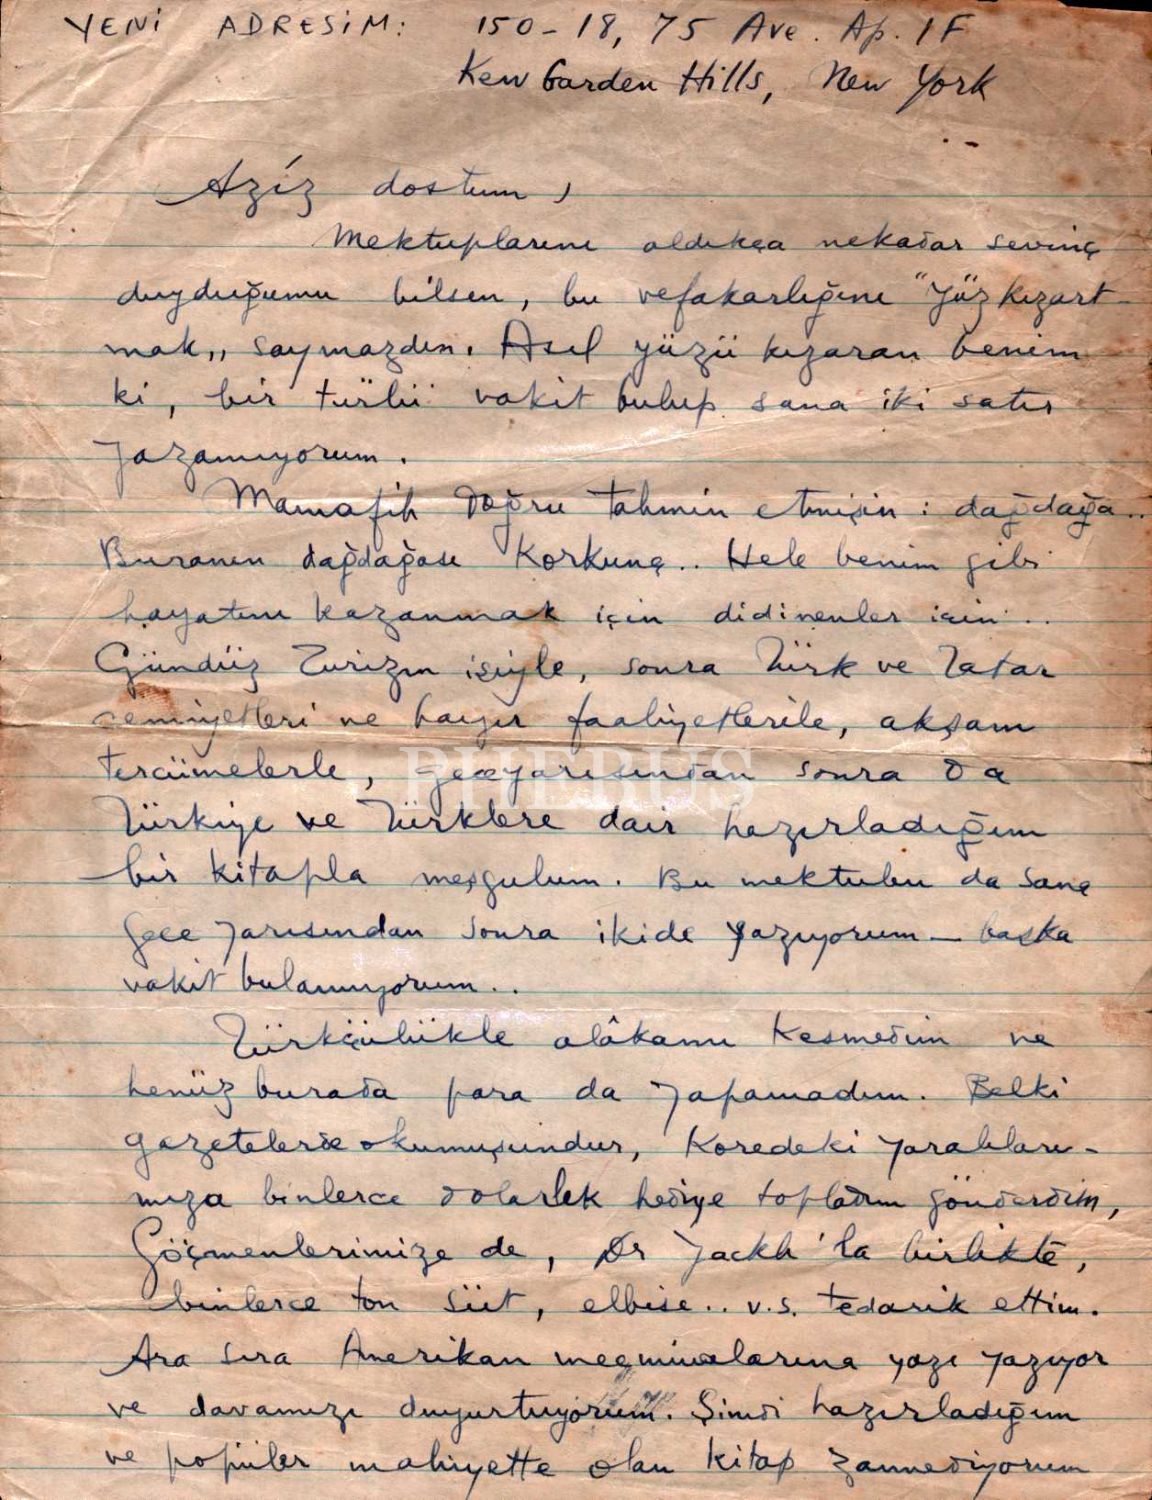 YENİ ADRESİM: 150-18, 75 Ave. Ap. 1F
Kew Garden Hills, New York
Aziz dostum,
Mektuplarını aldıkça nekadar sevinç
duyduğumu bilsen, bu vefakarlığını "yüz kızart-
mak„ saymazdın. Asıl yüzü kızaran benim
ki, bir türlü vakit bulup sana iki satır
yazamıyorum.
Mamafih doğru tahmin etmişin: dağdağa..
Buranın dağdağası korkunç.. Hele benim gibi
hayatını kazanmak için didinenler için..
Gündüz Turizm işiyle, sonra Türk ve Tatar
cemiyetleri ve hayır faaliyetlerile, akşam
tercümelerle, geceyarısından sonra da
Türkiye ve Türklere dair hazırladığım
bir kitapla meşgulum. Bu mektubu da sana
gece yarısından sonra ikide yazıyorum — başka
vakit bulamıyorum..
Türkçülükle alâkamı kesmedim ve
henüz burada para da yapamadım. Belki
gazetelerde okumuşundur, Koredeki yaralıları-
mıza binlerce dolarlık hediye topladım gönderdim,
Göçmenlerimize de, Dr Jackh'la birlikte,
binlerce ton süt, elbise.. v.s. tedarik ettim.
Ara sıra Amerikan mecmualarına yazı yazıyor
ve davamızı duyurtuyorum. Şimdi hazırladığım
ve popüler mahiyette olan kitap zannediyorum
PHEBUS